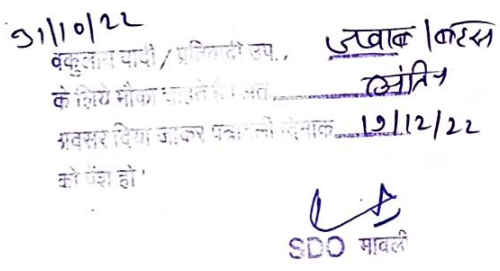 31/10/22
वकुलान वादी / प्रतिवादी उप., जवाब / बहस
के लिये मौका चाहते है। अत. अंतिम
अवसर दिया जाकर पत्रावली दिनाक 19/12/22
को पेश हो'
SDO मावली